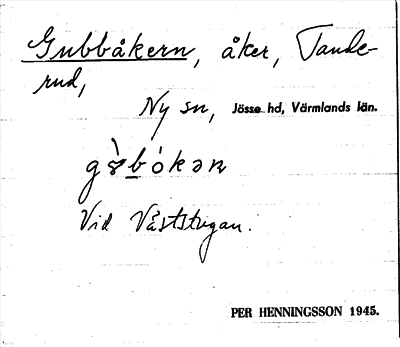 Gubbåkern, åker, Tande-
rud,
Ny sn, Jösse hd, Värmlands län.
Vid Våststugan.
PER HENNINGSSON 1945.